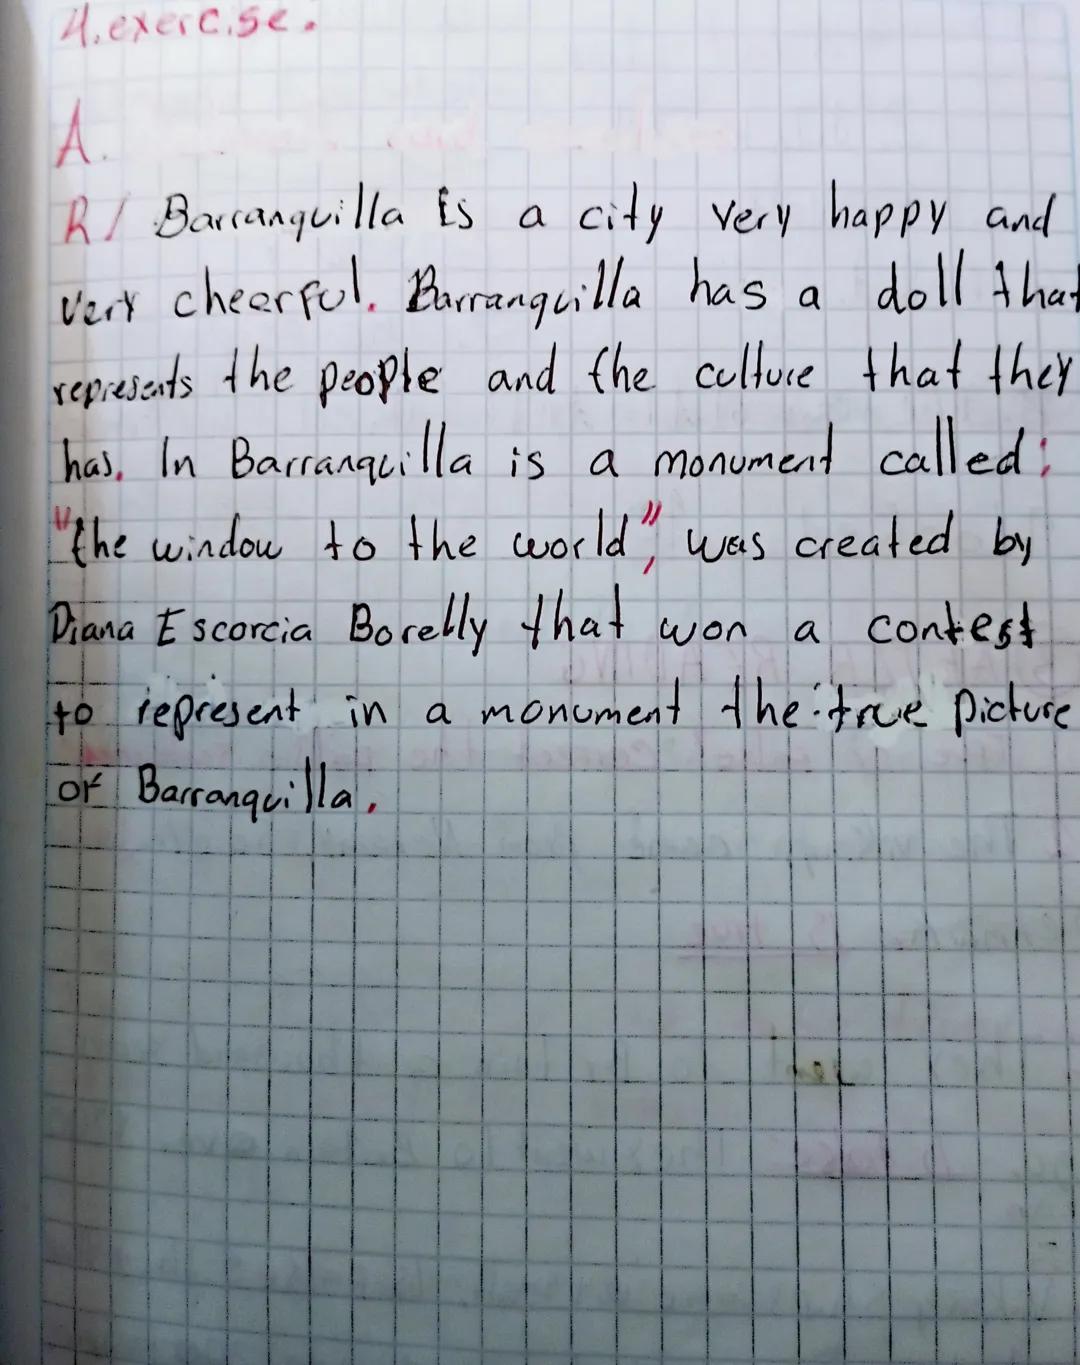 4. exercise.
A.
R/ Barranquilla is a city very happy and
very cheerful. Barranquilla has a doll that
represents the people and the culture that they
has. In Barranquilla is a monument called:
"the window to the world", was created by
Diana Escorcia Borelly that won a contest
to represent in a monument the true picture
of Barranquilla.